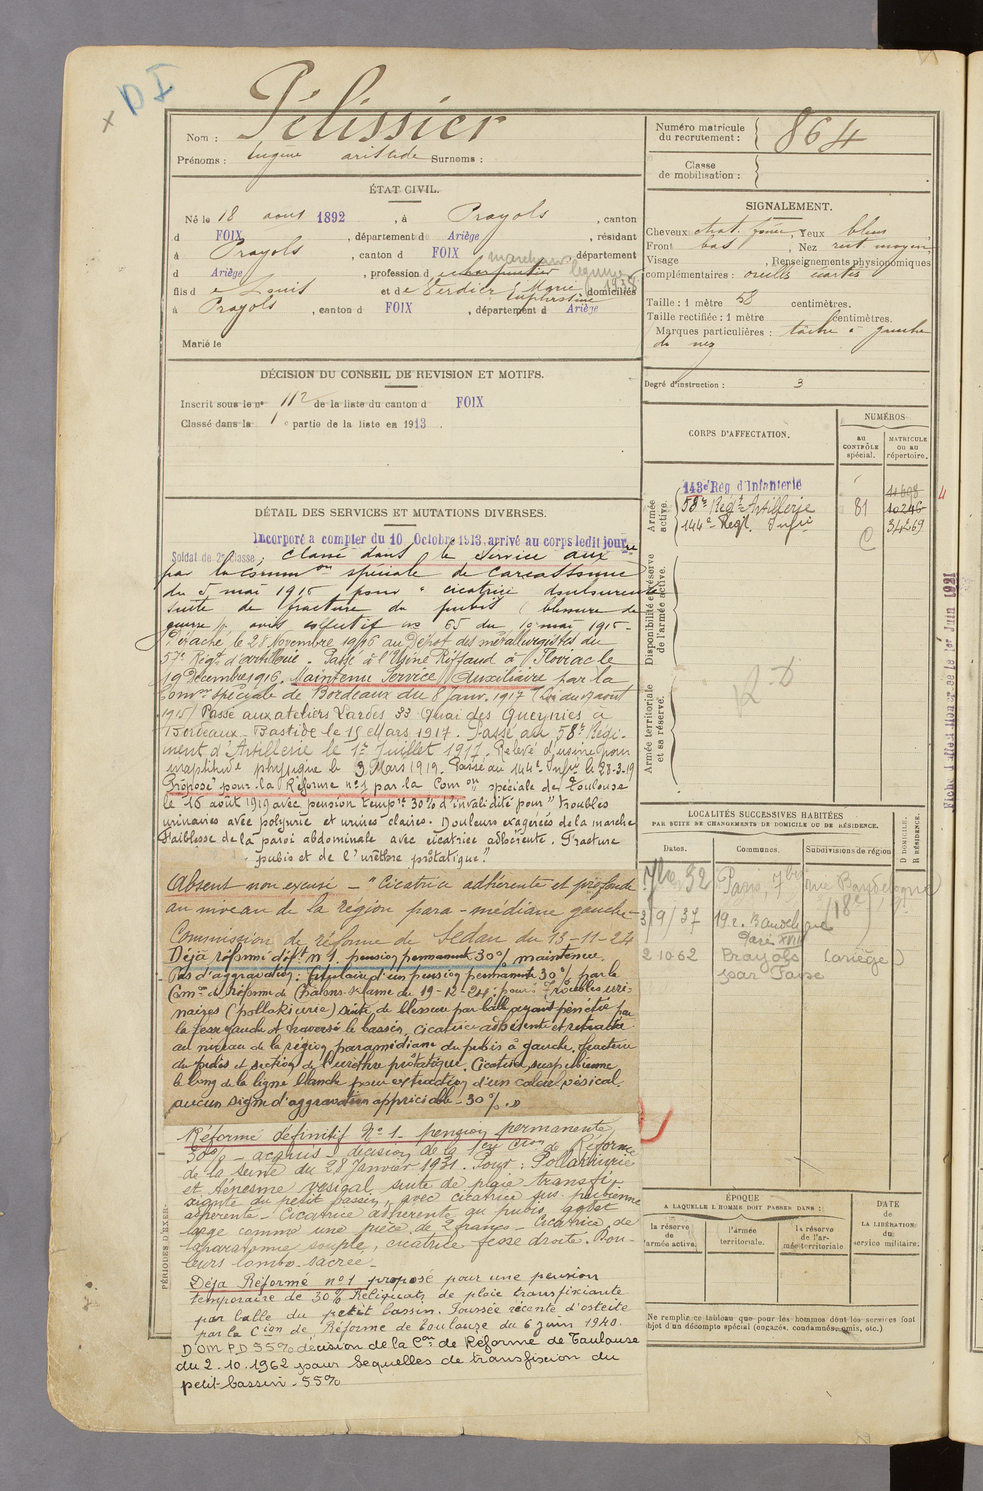 DI
Nom : Pélissier
Prénoms : Eugène aristide Surnoms :
Numéro matricule du recrutement : 864
Classe de mobilisation :
ÉTAT CIVIL.
Né le 18 aout 1892, à Prayols, canton
d FOIX, département d Ariège, résidant
à Prayols, canton d FOIX, département
d Ariège, profession d marchand légumes 1938
fils de Louis et de Verdier Marie Euphrasine domiciliés
à Prayols, canton d FOIX, département d Ariège
Marié le
SIGNALEMENT.
Cheveux chat. foncé, Yeux bleus
Front bas, Nez rect moyen
Visage, Renseignements physionomiques
complémentaires : oreilles écartées
Taille : 1 mètre 58 centimètres.
Taille rectifiée : 1 mètre centimètres.
Marques particulières : tâche à gauche
du nez
Degré d'instruction : 3
DÉCISION DU CONSEIL DE REVISION ET MOTIFS.
Inscrit sous le n° 112 de la liste du canton d FOIX
Classé dans la 1e partie de la liste en 1913.
CORPS D'AFFECTATION.
NUMÉROS
AU CONTRÔLE spécial.
MATRICULE OU AU répertoire.
Armée active.
143e Rég d'Infanterie
58e Régt Artillerie 81 10246
144e Régt Infie 3469
Disponibilité et réserve de l'armée active.
Armée territoriale et sa réserve.
DÉTAIL DES SERVICES ET MUTATIONS DIVERSES.
Incorporé à compter du 10 Octobre 1913 arrivé au corps ledit jour
Soldat de 2e classe, classé dans le service auxre
par la common spéciale de Carcassonne
du 5 mai 1915 pour "cicatrice douloureuse
suite de fracture du pubis (blessure de
guerre)". avis collectif no 65 du 19 mai 1915-
Détaché le 28 Novembre 1916 au Dépot des métallurgistes du
57e Régt d'artillerie. Passé à l'Usine Riffaud à Floirac le
19 Décembre 1916. Maintenu Service Auxiliaire par la
Comon spéciale de Bordeaux du 6 Janv. 1917 (Loi du 17 aout
1915) Passé aux ateliers Vardes 33 Quai des Queyries à
Bordeaux-Bastide le 15 Mars 1917. Passé au 58e Régi-
ment d'Artillerie le 1er Juillet 1917. Relevé d'usine pour
inaptitude physique le 3 Mars 1919. Passé au 144e Infie le 28-3-19
Proposé pour la Réforme n°1 par la Comon spéciale de Toulouse
le 16 août 1919 avec pension tempre 30% d'invalidité pour "troubles
urinaires avec polyurie et urines claires. Douleurs exagérées de la marche
Faiblesse de la paroi abdominale avec cicatrice adhérente. Fracture
pubis et de l'urèthre prôtatique."
Absent non excusé - "Cicatrice adhérente et profonde
au niveau de la région para-médiane gauche-
Commission de réforme de Sedan du 13-11-24
Déjà réformé déft n° 1. pension permanente 30% maintenue.
Pas d'aggravation: titulaire d'une pension permanente 30% par la
Comon de Réforme de Chalons s-Marne du 19-12-24: pour: Troubles uri-
naires (pollakiurie) suite de blessure par balle ayant pénétré par
la fesse gauche et traversé le bassin, cicatrice adhérente et rétractée
au niveau de la région paramédiane du pubis à gauche, fracture
du pubis et section de l'urèthre prôtatique. Cicatrice suspubienne
le long de la ligne blanche pour extraction d'un calcul vésical.
aucun signe d'aggravation appréciable - 30%.
Réformé définitif N°1- pension permanente
30% - acquis - décision de la 1ère Cion de Réforme
de la Seine du 28 Janvier 1931. Pour: Pollakiurie
et ténesme vésical suite de plaie transfi-
xiante du petit bassin, avec cicatrice sus-pubienne
adhérente - Cicatrice adhérente au pubis gauche
large comme une pièce de 2 francs - Cicatrice de
laparatomie souple, cicatrice fesse droite. Dou-
leurs lombo-sacrée -
Déjà Réformé n°1 proposé pour une pension
temporaire de 30% Reliquats de plaie transfixiante
par balle du petit bassin. Poussée récente d'ostéite
par la Cion de Réforme de Toulouse du 6 juin 1940.
D'OM PD 55% décision de la Con de Réforme de Toulouse
du 2.10.1962 pour Sequelles de transfixion du
petit bassin. 55%
LOCALITÉS SUCCESSIVES HABITÉES
PAR SUITE DE CHANGEMENTS DE DOMICILE OU DE RÉSIDENCE.
Dates. Communes. Subdivisions de région
D DOMICILE. R RÉSIDENCE.
7bre 32 Paris, 7bis rue Baudelique (18e)
3/9/37 19 r. Baudelique
Paris XVIII
2-10-62 Prayols (Ariège)
par Passe
ÉPOQUE
A LAQUELLE L'HOMME DOIT PASSER DANS :
la réserve de l'armée active.
l'armée territoriale.
la réserve de l'armée territoriale
DATE de LA LIBÉRATION du service militaire.
PÉRIODES D'EXER-
Ne remplir ce tableau que pour les hommes dont les services font
objet d'un décompte spécial (engagés, condamnés, omis, etc.)